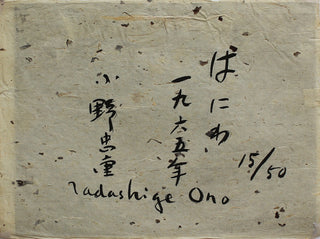 はにわ
一九六五年
小野忠重
15/50
Tadashige Ono